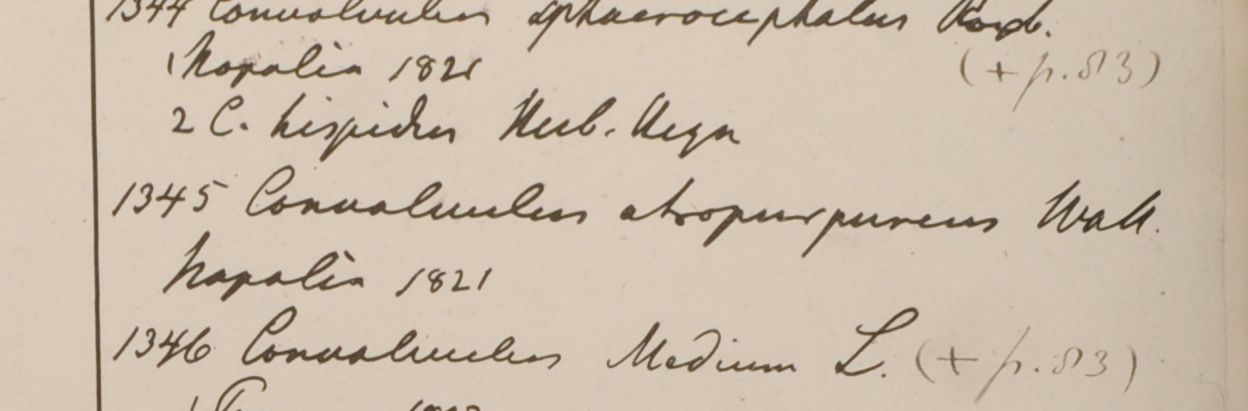 1344 Convolvulus sphaerocephalus Roxb.
1 Napalia 1821
(+ p. 83)
2 C. hispidus Herb. Heyn
1345 Convolvulus atropurpureus Wall.
Napalia 1821
1346 Convolvulus Medium L. (+ p. 83)